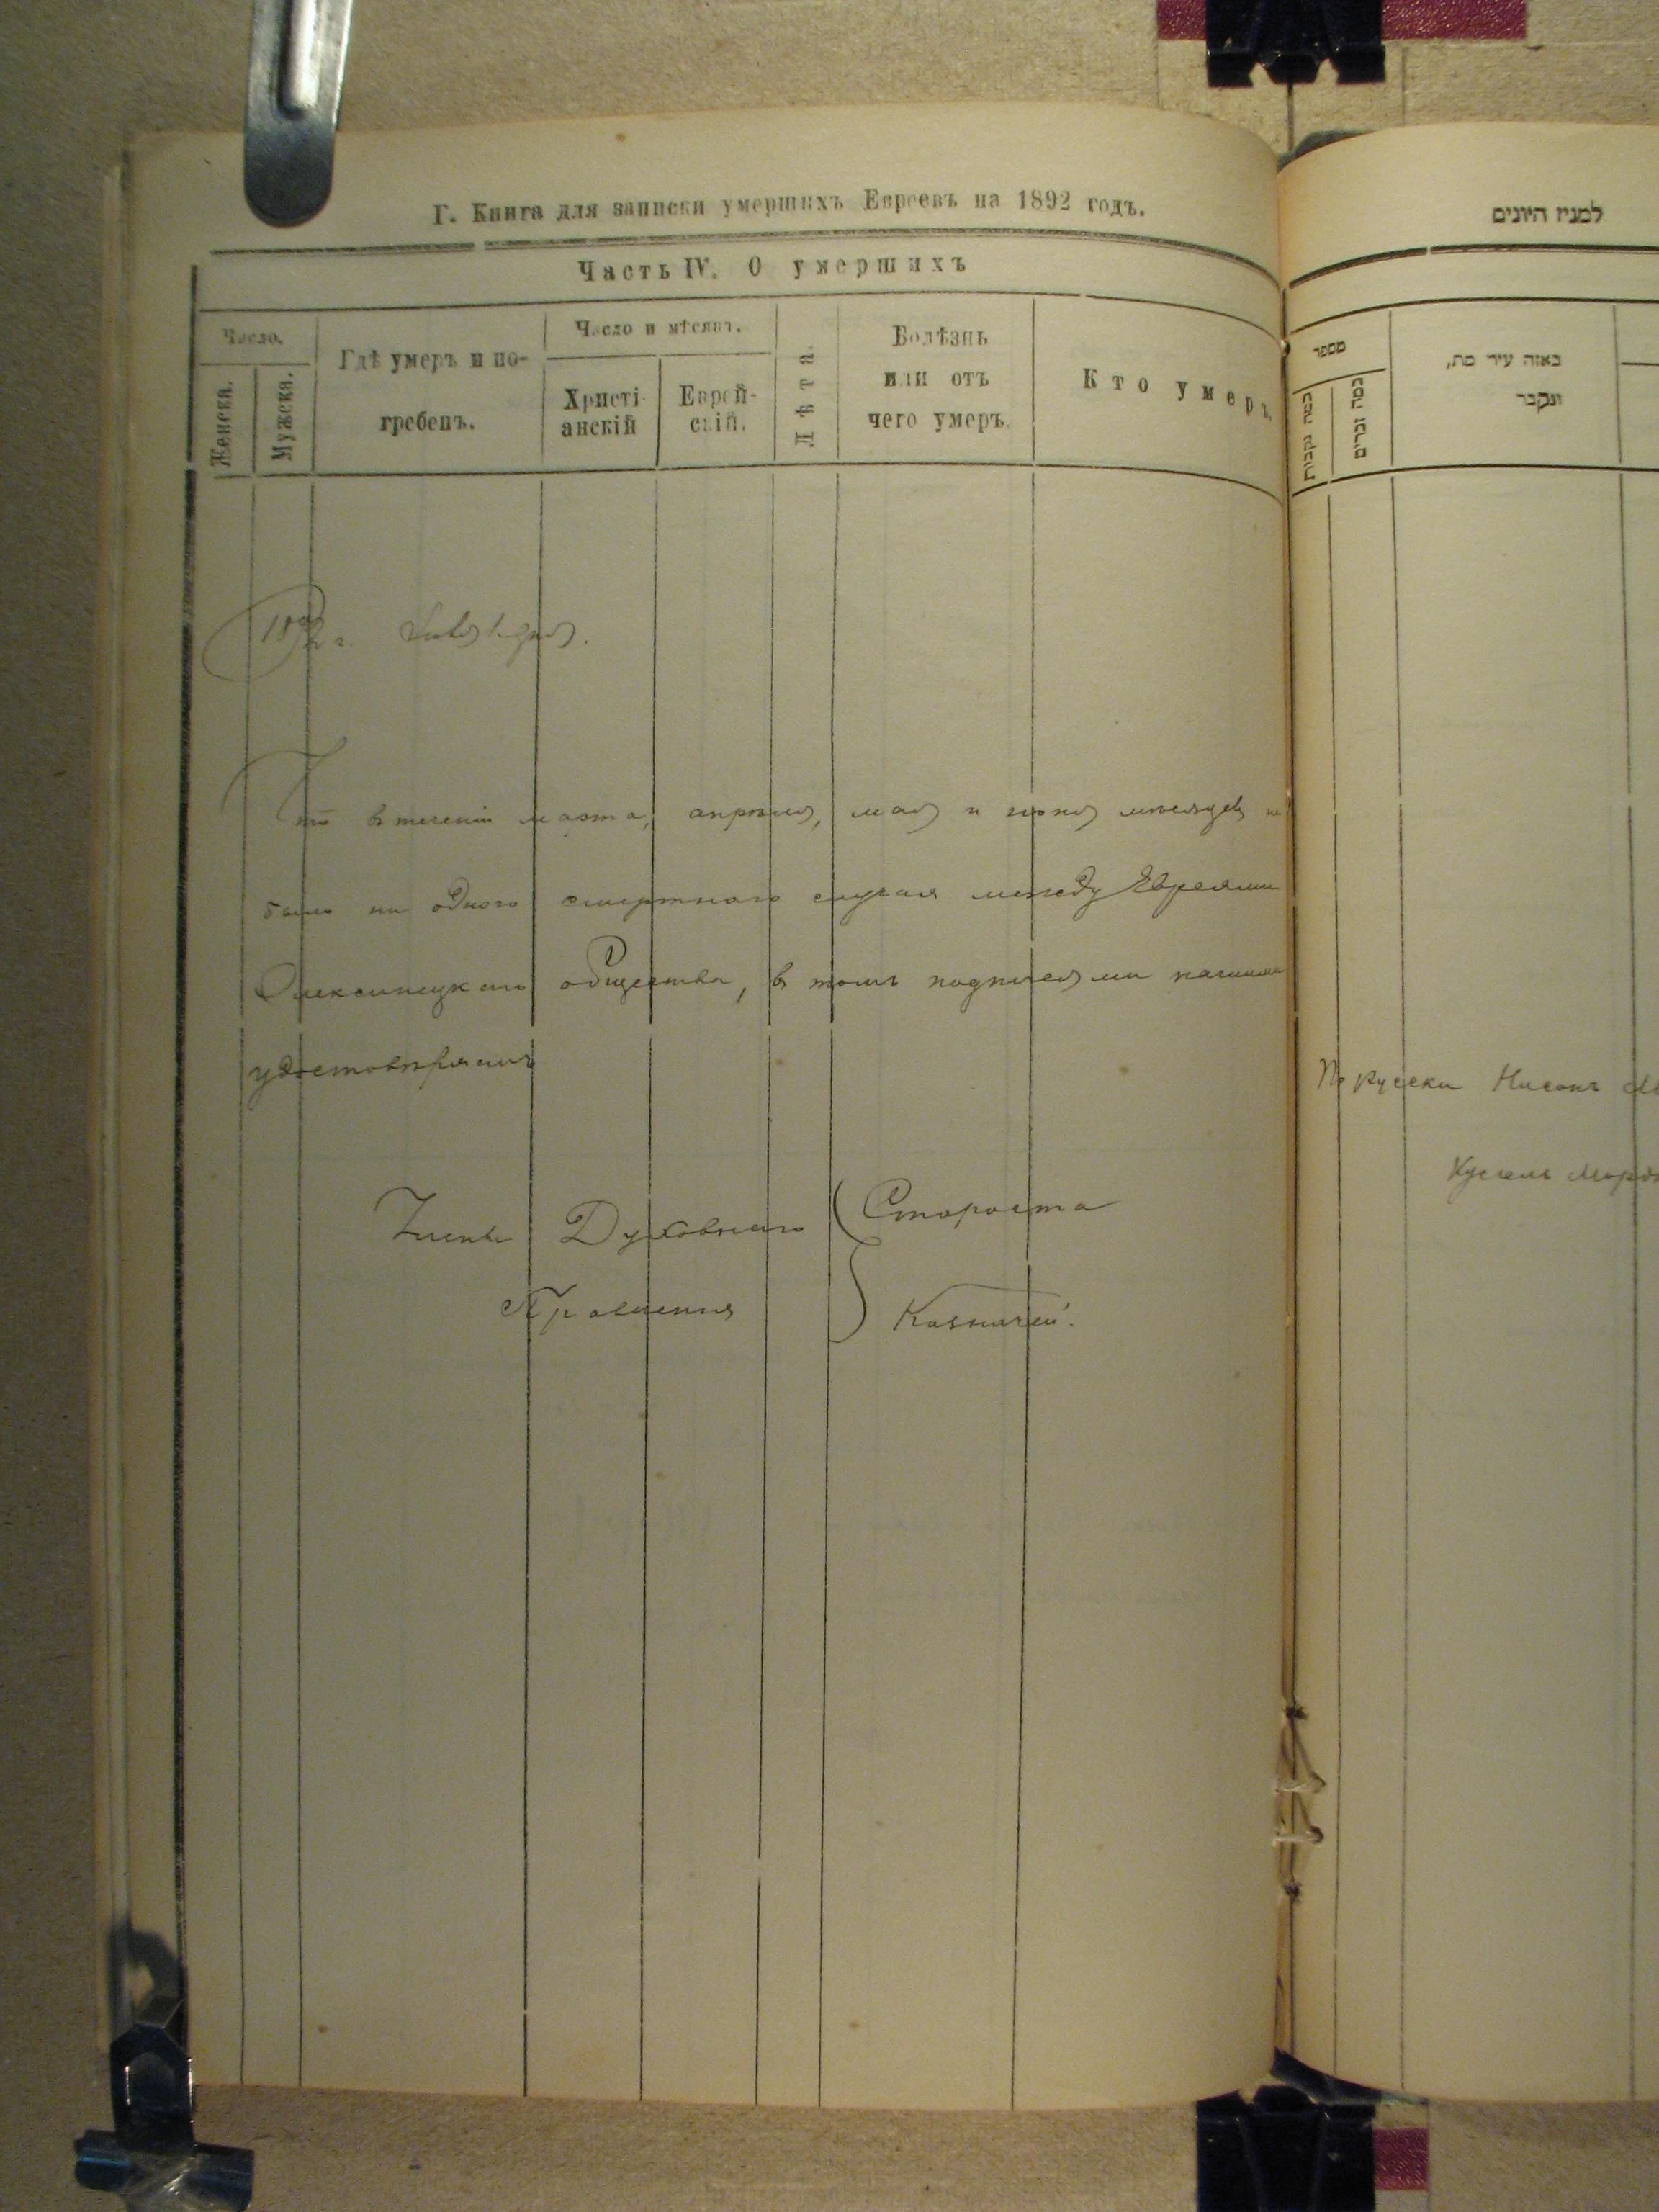 Г. Книга для записки умершихъ Евреевъ на 1892 годъ.
Часть IV. О умершихъ
Число.
Женска.
Мужска.
Гдѣ умеръ и по-
гребенъ.
Число и мѣсяцъ.
Христі-
анскій
Еврей-
скій.
Лѣта.
Болѣзнь
или отъ
чего умеръ.
Кто умеръ.
1892 г.
Что в течении марта, апрѣля, мая и июня мѣсяцев не
было ни одного смертного случая между Евреями
Олексинецкаго общества, в томъ подписями нашими
удостовѣряемъ
Члены Духовнаго Староста
Правления Казначей.
למנין היונים
מספר
כמה נקבות
כמה זכרים
באזה עיר מת,
ונקבר
По русски Нисонъ